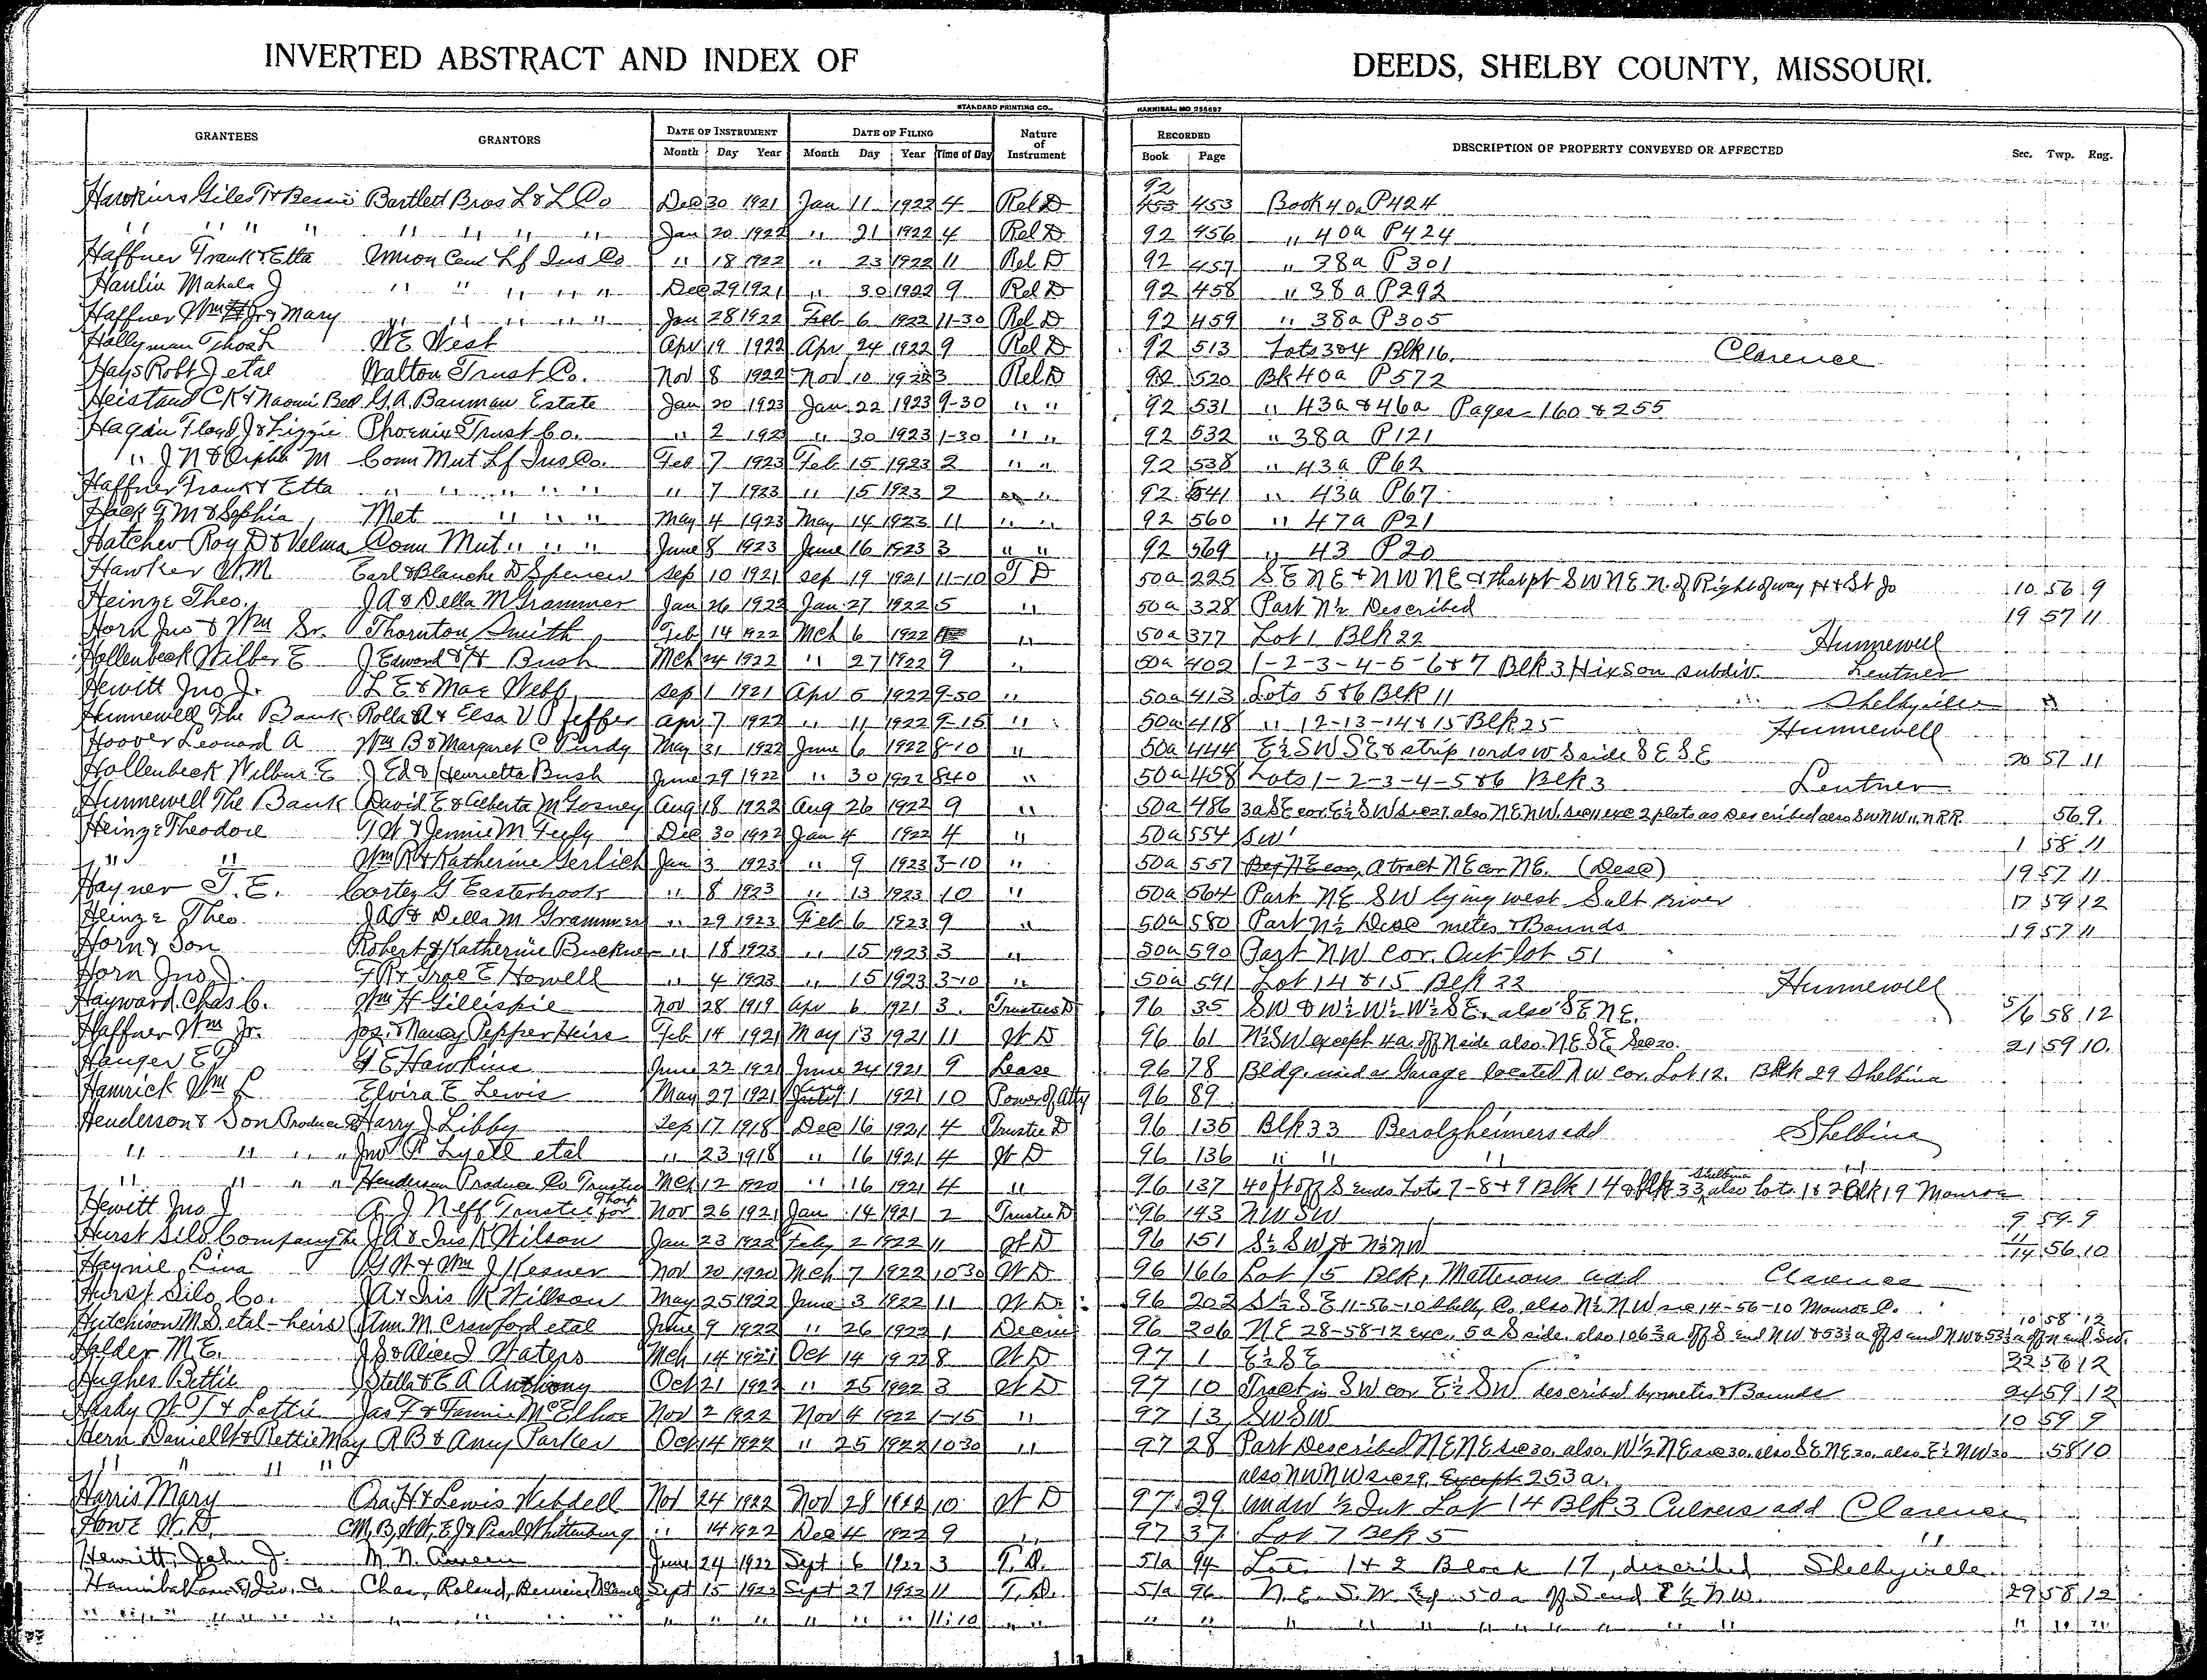 INVERTED ABSTRACT AND INDEX OF DEEDS, SHELBY COUNTY, MISSOURI.
STANDARD PRINTING CO., HANNIBAL, MO 258697
GRANTEES GRANTORS DATE OF INSTRUMENT DATE OF FILING Nature of Instrument RECORDED DESCRIPTION OF PROPERTY CONVEYED OR AFFECTED Sec. Twp. Rng.
Month Day Year Month Day Year Time of Day Book Page
Hawkins Giles T & Bessie Bartlett Bros L & L Co Dec 30 1921 Jan 11 1922 4 Rel D 92 453 453 Book 40a P424
" " " " " " " " Jan 20 1922 " 21 1922 4 Rel D 92 456 " 40a P424
Haffner Frank & Etta Union Cen Lf Ins Co " 18 1922 " 23 1922 11 Rel D 92 457 " 38a P301
Hanlin Mahala J " " " " " Dec 29 1921 " 30 1922 9 Rel D 92 458 " 38a P292
Haffner Wm Jr & Mary " " " " " Jan 28 1922 Feb 6 1922 11-30 Rel D 92 459 " 38a P305
Hollyman Thos L W E West Apr 19 1922 Apr 24 1922 9 Rel D 92 513 Lots 3&4 Blk 16. Clarence
Hays Robt J etal Walton Trust Co. Nov 8 1922 Nov 10 1922 3 Rel D 92 520 Bk 40a P572
Heistand C K & Naomi Bell G. A. Bauman Estate Jan 20 1923 Jan 22 1923 9-30 " " 92 531 " 43a & 46a Pages 160 & 255
Hagan Floyd J & Lizzie Phoenix Trust Co. " 2 192 " 30 1923 1-30 " " 92 532 " 38a P121
" J N & Orpha M Conn Mut Lf Ins Co. Feb 7 1923 Feb 15 1923 2 " " 92 538 " 43a P62
Haffner Frank & Etta " " " " " " 7 1923 " 15 1923 2 " " 92 541 " 43a P67
Hack G M & Sophia Met " " " May 4 1923 May 14 1923 11 " " 92 560 " 47a P21
Hatcher Roy D & Velma Conn Mut " " " June 8 1923 June 16 1923 3 " " 92 569 " 43 P20
Hawker V. M. Earl & Blanche D Spencer Sep 10 1921 Sep 19 1921 11-10 T D 50a 225 S E N E & N W N E & that pt S W N E N. of Right of way H & St Jo 10 56 9
Heinze Theo. J A & Della M Grammer Jan 26 1922 Jan 27 1922 5 " 50a 328 Part N½ Described 19 57 11
Horn Jno & Wm Sr. Thornton Smith Feb 14 1922 Mch 6 1922 " 50a 377 Lot 1 Blk 22 Hunnewell
Hollenbeck Wilber E J Edward & H Bush Mch 24 1922 " 27 1922 9 " 50a 402 1-2-3-4-5-6 & 7 Blk 3 Hixson subdiv. Lentner
Hewitt Jno J. L E & Mae Webb Sep 1 1921 Apr 5 1922 9-50 " 50a 413 Lots 5&6 Blk 11 Shelbyville
Hunnewell The Bank Rolla A & Elsa V Jeffer Apr 7 1922 " 11 1922 9-15 " 50a 418 " 12-13-14 & 15 Blk 25 Hunnewell
Hoover Leonard A Wm B & Margaret C Purdy May 31 1922 June 6 1922 8-10 " 50a 444 E½ S W S E & strip 10 rds W S side S E S E 20 57 11
Hollenbeck Wilbur E J Ed & Henrietta Bush June 29 1922 " 30 1922 840 " 50a 458 Lots 1-2-3-4-5&6 Blk 3 Lentner
Hunnewell The Bank David E & Alberta M Gosney Aug 18 1922 Aug 26 1922 9 " 50a 486 3a S E cor. E½ S W sec 27 also N E N W. sec 11 exc 2 plats as Described also S W N W 11 N R R. 56 9
Heinze Theodore G W & Jennie M Feely Dec 30 1922 Jan 4 1922 4 " 50a 554 S W 1 58 11
" " Wm R & Katherine Gerlich Jan 3 1923 " 9 1923 3-10 " 50a 557 Beg N E cor, A tract N E cor N E. (Desc) 19 57 11
Hayner T. E. Cortez G Easterbooks " 8 1923 " 13 1923 10 " 50a 564 Part N E S W lying west Salt river 17 59 12
Heinze Theo. J A & Della M Grammer " 29 1923 Feb 6 1923 9 " 50a 580 Part N½ Desc metes & Bounds 19 57 11
Horn & Son Robert & Katherine Buckner " 18 1923 " 15 1923 3 " 50a 590 Part N W cor. Out-lot 51
Horn Jno J. Howell " 4 1923 15 1923 3-10 " 50a 591 Lot 14 & 15 Blk 22 Hunnewell
Hayward Chas C. Wm H Gillispie Nov 28 1919 Apr 6 1921 3 Trustees D 96 35 S W & W½ W½ W½ S E. also S E N E. 5/6 58 12
Haffner Wm Jr. Jos. & Nancy Pepper Heirs Feb 14 1921 May 13 1921 11 W D 96 61 N½ S W except 4a. off N side also N E S E Sec 20. 21 59 10
Hanger E P G E Hawkins June 22 1921 June 24 1921 9 Lease 96 78 Bldg. used as Garage located N W cor. Lot 12. Blk 29 Shelbina
Hamrick Wm L Elvira E Lewis May 27 1921 July 1 1921 10 Power of Atty 96 89
Henderson & Son Produce Co Harry J Libby Sep 17 1918 Dec 16 1921 4 Trustee D 96 135 Blk 33 Berolzheimers add Shelbina
" " " " Jno P Lyell etal " 23 1918 " 16 1921 4 W D 96 136 " " " "
" " " " Henderson Produce Co Trustee Mch 12 1920 " 16 1921 4 " 96 137 40 ft off S ends Lots 7-8 & 9 Blk 14 & Blk 33 Shelbina also lots 1 & 2 Blk 19 Monroe
Hewitt Jno J A. J Neff Trustee for Thorp Nov 26 1921 Jan 14 1921 2 Trustee D 96 143 N W S W 9 59 9
Hurst Silo Company The J A & Iris K Wilson Jan 23 1922 Feby 2 1922 11 W D 96 151 S½ S W & N½ N W 11/14 56 10
Haynie Lina G W & Wm J Kesner Nov 20 1920 Mch 7 1922 1030 W D 96 166 Lot 15 Blk 1 Mattersons add Clarence
Hurst Silo Co. J A & Iris K Willson May 25 1922 June 3 1922 11 W D. 96 202 S½ S E 11-56-10 Shelby Co. also N½ N W sec 14-56-10 Monroe C.
Hutchison M. S. etal-heirs Ann. M. Crawford etal June 9 1922 " 26 1922 1 Decree 96 206 N E 28-58-12 exc. 5a S side. also 106⅔a off S end N W & 53⅓a off 10 58 12
Holder M E. J S & Alice J Waters Mch 14 1921 Oct 14 1922 8 W D 97 1 E½ S E 22 56 12
Hughes Bettie Stella & E A Anthony Oct 21 1922 " 25 1922 3 W D 97 10 Tract in S W cor E½ S W described by metes & Bounds 24 59 12
Hardy W T & Lottie Jas F & Fannie McElhoe Nov 2 1922 Nov 4 1922 1-15 " 97 13 S W S W 10 59 9
Hern Daniel W & Rettie May R B & Amy Parker Oct 14 1922 " 25 1922 1030 " 97 28 Part Described N E N E sec 30. also. W½ N E sec 30. also S E N E 30. also E½ N W 30 58 10
" " " " also N W N W sec 29, Except 253 a.
Harris Mary Ora H & Lewis Webdell Nov 24 1922 Nov 28 1922 10 W D 97 29 undiv ½ Int Lot 14 Blk 3 Culvers add Clarence
Howe W. D. C M, B, W W, E J & Pearl Whittenburg " 14 1922 Dec 4 1922 9 " 97 37 Lot 7 Blk 5 "
Hewitt, John J. M. N. June 24 1922 Sept 6 1922 3 T. D. 51a 94 Lots 1 & 2 Block 17, described Shelbyville
Hannibal Loan & Inv. Co. Chas, Roland, Bernice Sept 15 1922 Sept 27 1922 11 T. D. 51a 96 N. E. S. W. 50 a off S end E½ N W. 29 58 12
" " " " " " " " " " " " 11:10 " " " " " " " " " " " " " " "